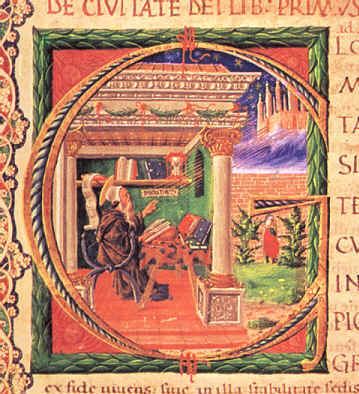 DE CIVITATE DEI LIB: PRIMVS
G
LO
M
TA
SI
TE
CV
IN
PIO
GR
ex fide uiuens: siue in illa stabilitate sedis